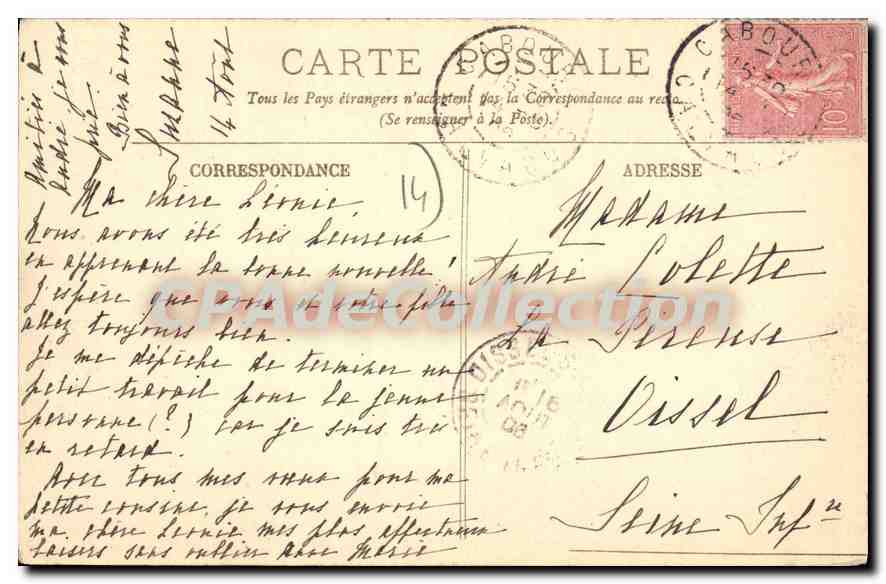 CARTE POSTALE
Tous les Pays étrangers n'acceptent pas la Correspondance au recto
(Se renseigner à la Poste).
CORRESPONDANCE
14
Ma chère Léonie,
Nous avons été très heureux
en apprenant la bonne nouvelle!
J'espère que vous et votre fille
allez toujours bien.
Je me dépêche de terminer un
petit travail pour la jeune
personne (?) car je suis très
en retard.
Avec tous mes vœux pour ma
petite cousine, je vous envoie
ma chère Léonie, mes plus affectueux
baisers sans oublier Marie
Amitiés à
André je vous
prie.
Bien à vous
Suzanne
14 Août
ADRESSE
Madame
André Lolette
La Péreuse
Oissel
Seine Infre
CABOURG
CABOURG
OISSEL
16
AOUT
06
10
CPAdeCollection.com